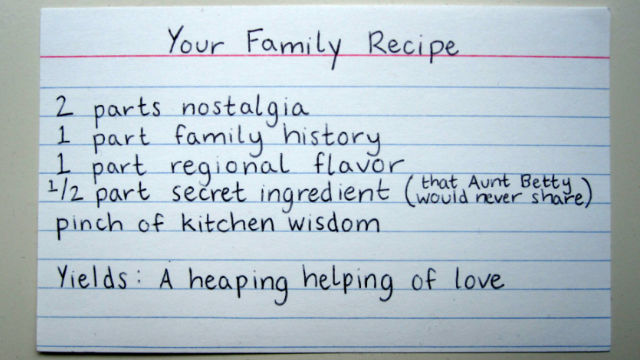 Your Family Recipe
2 parts nostalgia
1 part family history
1 part regional flavor
1/2 part secret ingredient (that Aunt Betty would never share)
pinch of kitchen wisdom
Yields: A heaping helping of love